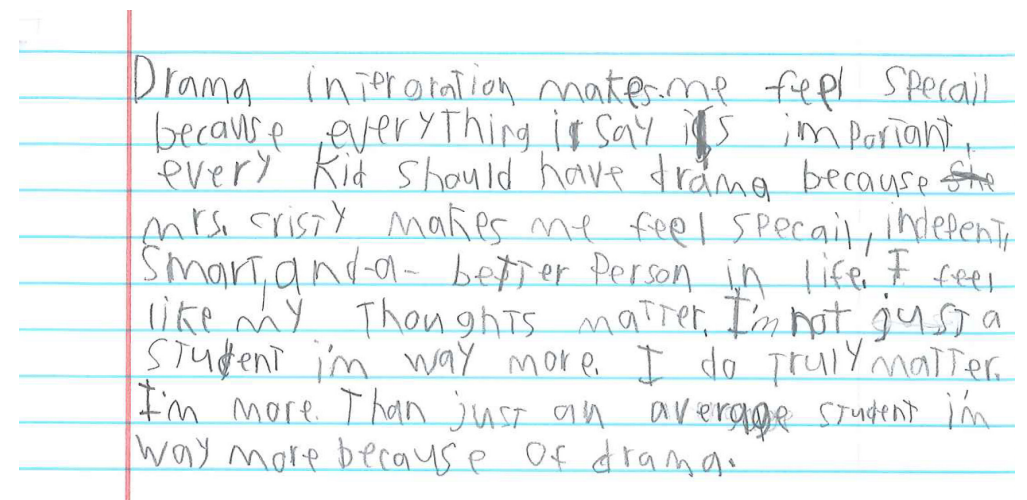 Drama interoration makes me feel specail
because everything i say is important,
every kid should have drama because she
mrs. cristy makes me feel specail, indepent,
Smart, and a better person in life. I feel
like my thoughts matter. I'm not just a
student i'm way more. I do truly matter.
I'm more than just an average student i'm
way more because of drama.